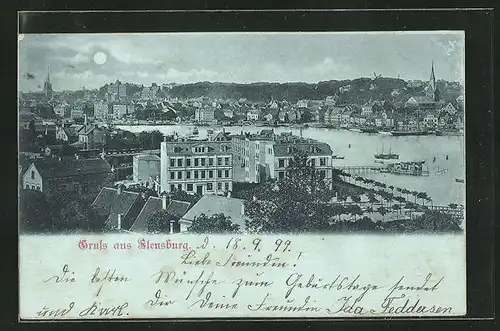 Gruß aus Flensburg. d. 18. 9. 99.
Liebe Freundin!
Die besten Wünsche zum Geburtstage sendet
und Karl. Dir Deine Freundin Ida Feddersen